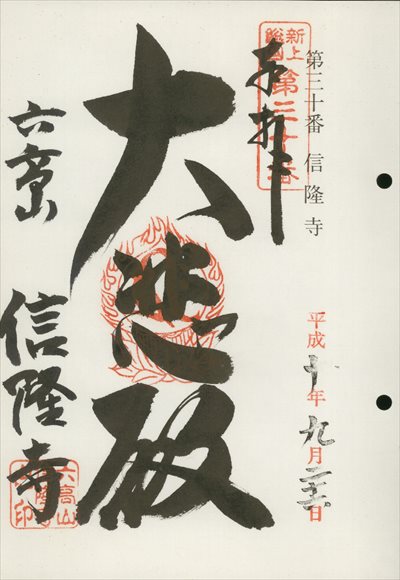 第三十番 信隆寺
新上総國
第三十番
奉拝
平成十年九月
日
大悲殿
六高山
信隆寺
六高山
信隆寺
印